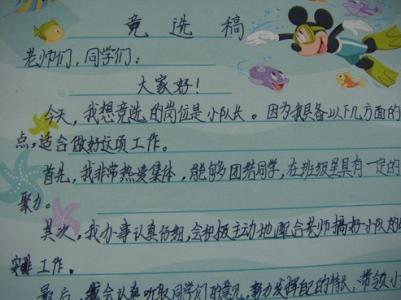 竞选稿
老师们，同学们：
大家好！
今天，我想竞选的岗位是小队长。因为我具备以下几方面的
点，适合做好这项工作。
首先，我非常热爱集体，能够团结同学，在班级里具有一定的
聚力。
其次，我办事认真仔细，会积极主动地配合老师搞好小队的
实推工作。
最后，我会认真听取同学们的意见，努力发挥自己的特长，带领小